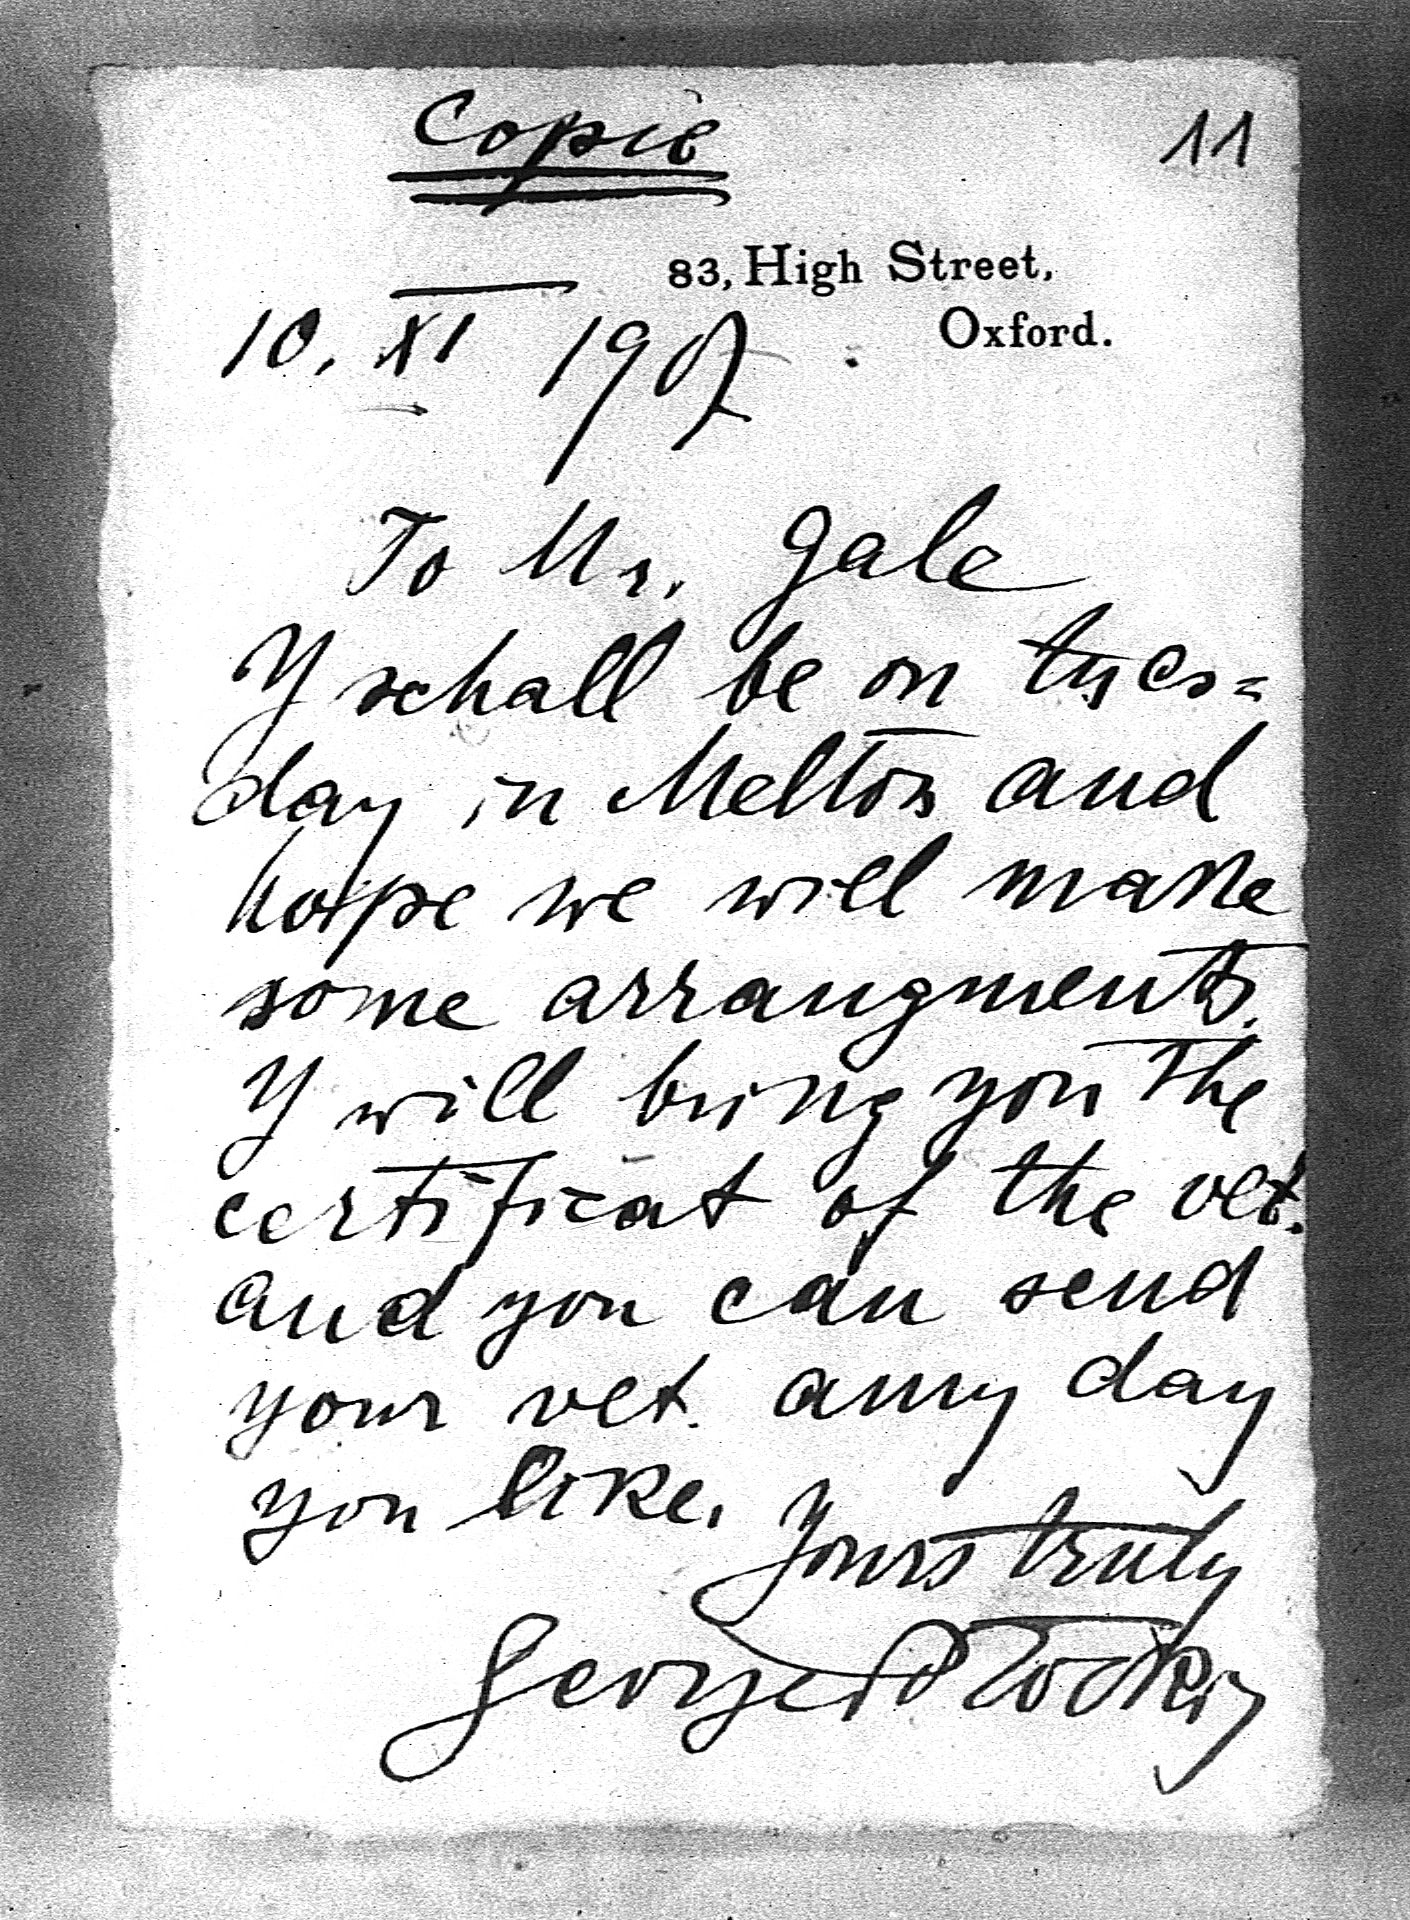 Copie
11
83, High Street,
Oxford.
10. XI 1907.
To Mr. Gale
Y schall be on tues=
day in Melton and
hope we will make
some arrangments.
Y will bring you the
certificat of the vet.
and you can send
your vet. anny day
you like.
Yours truly
George